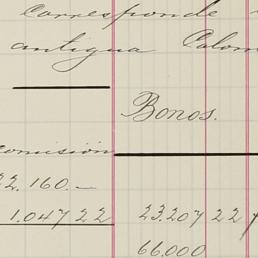 Corresponde
antigua Colom
Bonos.
omisión
22.160.—
1.047 22 23.207 22
66.000